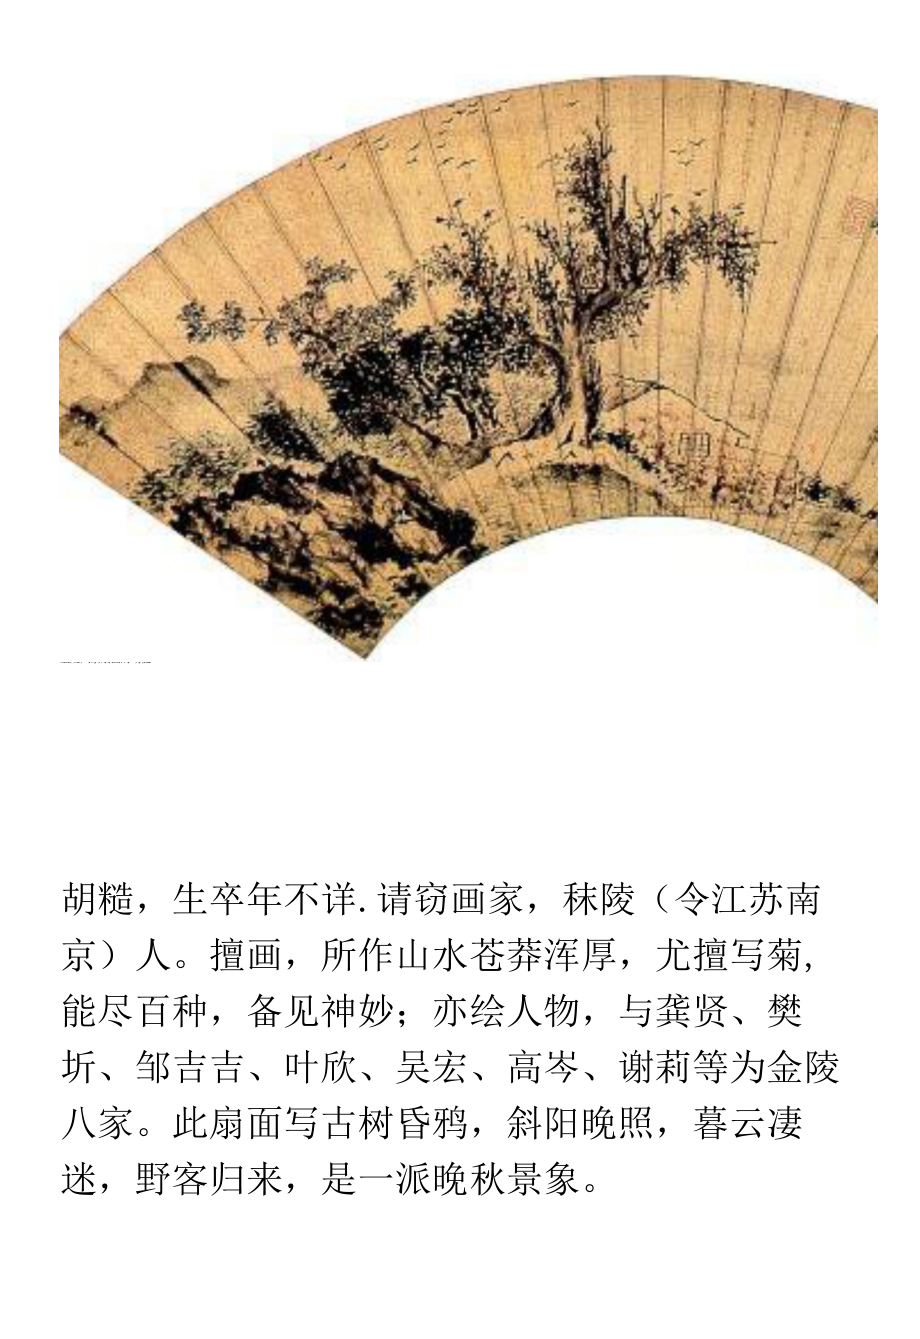 胡糙，生卒年不详. 请窃画家，秣陵（令江苏南
京）人。擅画，所作山水苍莽浑厚，尤擅写菊，
能尽百种，备见神妙；亦绘人物，与龚贤、樊
圻、邹吉吉、叶欣、吴宏、高岑、谢莉等为金陵
八家。此扇面写古树昏鸦，斜阳晚照，暮云凄
迷，野客归来，是一派晚秋景象。